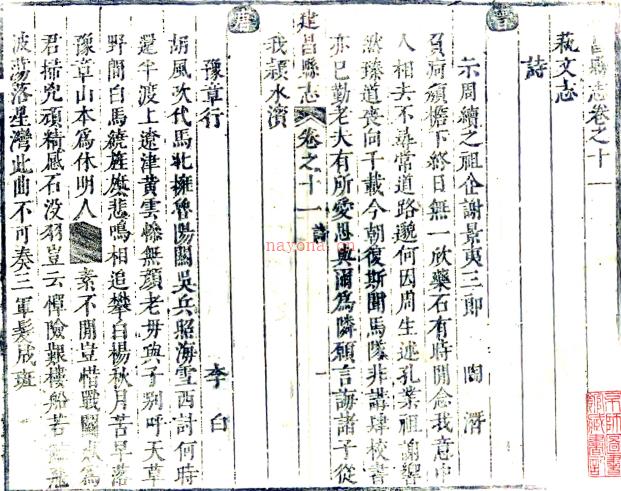 昌縣志卷之十一
萟文志
詩
晉
示周續之祖企謝景夷三郎 陶潛
負痾頹檐下終日無一欣藥石有時閒念我意中
人相去不尋常道路邈何因周生述孔業祖謝響
然臻道喪向千載今朝復斯聞馬隊非講肆校書
亦已勤老夫有所愛思與爾爲隣願言誨諸子從
建昌縣志 卷之十一 詩 一
我潁水濱
唐
豫章行 李白
胡風吹代馬北擁魯陽關吳兵照海雪西討何時
還半渡上遼津黃雲慘無顏老毋與子別呼天草
野間白馬繞旌旗悲鳴相追攀白楊秋月苦早落
豫章山本爲休明人素不閒豈惜戰鬭死爲
君掃兇頑精感石沒羽豈云憚險艱樓船若飛
波蕩落星灣此曲不可奏三軍髮成斑
nayona.cn